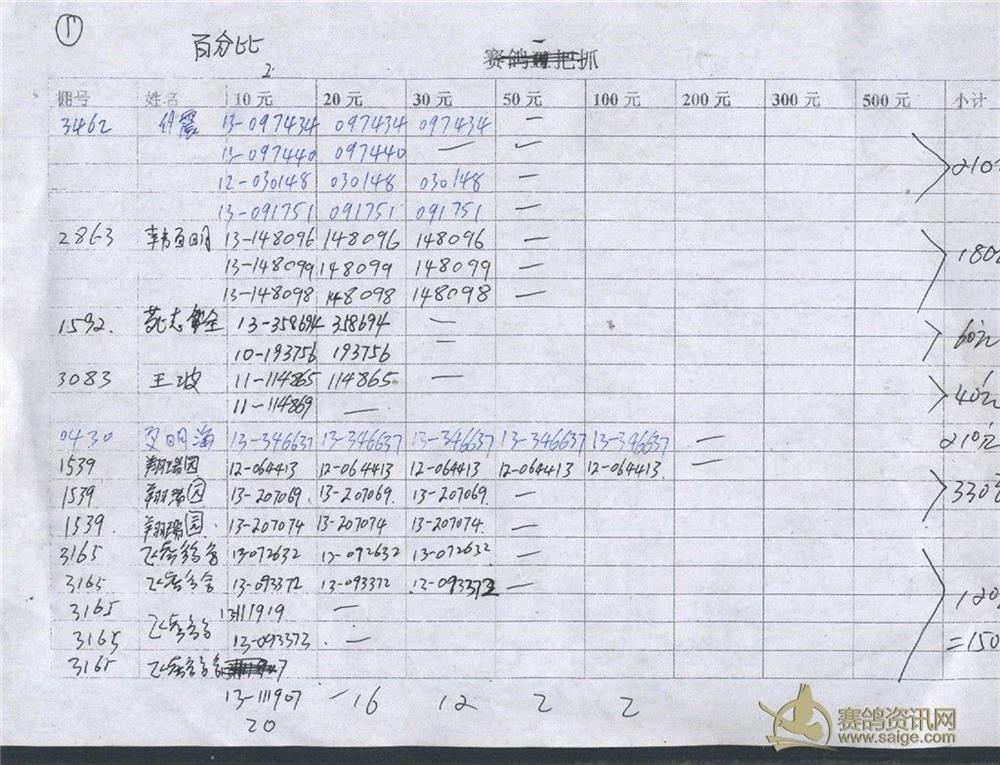 1
百分比
2
赛鸽 把抓
棚号 姓名 10元 20元 30元 50元 100元 200元 300元 500元 小计
3462 13-097434 097434 097434 — 210
13-097440 097440 — —
12-030148 030148 030148 —
13-091751 091751 091751 —
2863 韩百明 13-148096 148096 148096 — 180
13-148099 148099 148099 —
13-148098 148098 148098 —
1592. 13-358694 358694 — 60元
10-193756 193756 —
3083 王波 11-114865 114865 — 40元
11-114869 —
0430 明海 13-346637 13-346637 13-346637 13-346637 13-346637 — 210元
1539 翔瑞园 12-064413 12-064413 12-064413 12-064413 12-064413. — 330
1539 翔瑞园 13-207069. 13-207069. 13-207069. —
1539. 翔瑞园. 13-207074 13-207074 13-207074. —
3165 13-072632 13-072632 13-072632 — 120
3165 13-093372 13-093372 12-093372 —
3165 13111919 —
3165 13-093373. — =150
3165
13-111907 — 16 12 2 2
20
赛鸽资讯网
www.saige.com